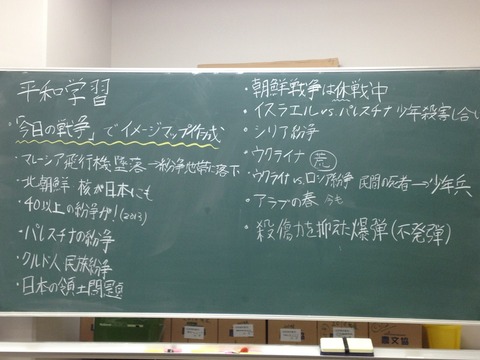 平和学習
「今日の戦争」でイメージマップ作成
・マレーシア飛行機墜落→紛争地帯に落下
・北朝鮮 核が日本にも
・40以上の紛争が!(2013)
・パレスチナの紛争
・クルド人民族紛争
・日本の領土問題
・朝鮮戦争は休戦中
・イスラエル vs パレスチナ 少年殺害し合い
・シリア紛争
・ウクライナ 荒
・ウクライナ vs. ロシア紛争 民間の死者→少年兵
・アラブの春 今も
・殺傷力を抑えた爆弾(不発弾)